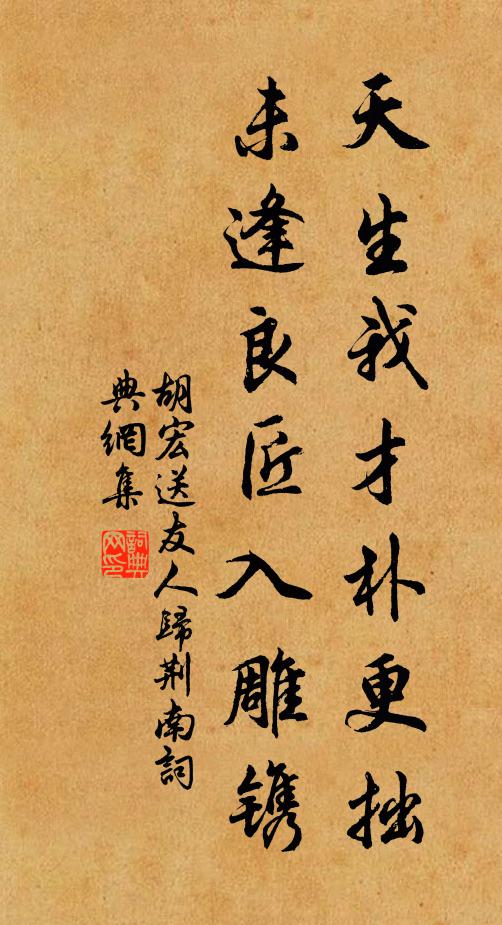 天生我才朴更拙
未逢良匠入雕镌
胡宏送友人歸荆南詞
典網集
詞典
网印